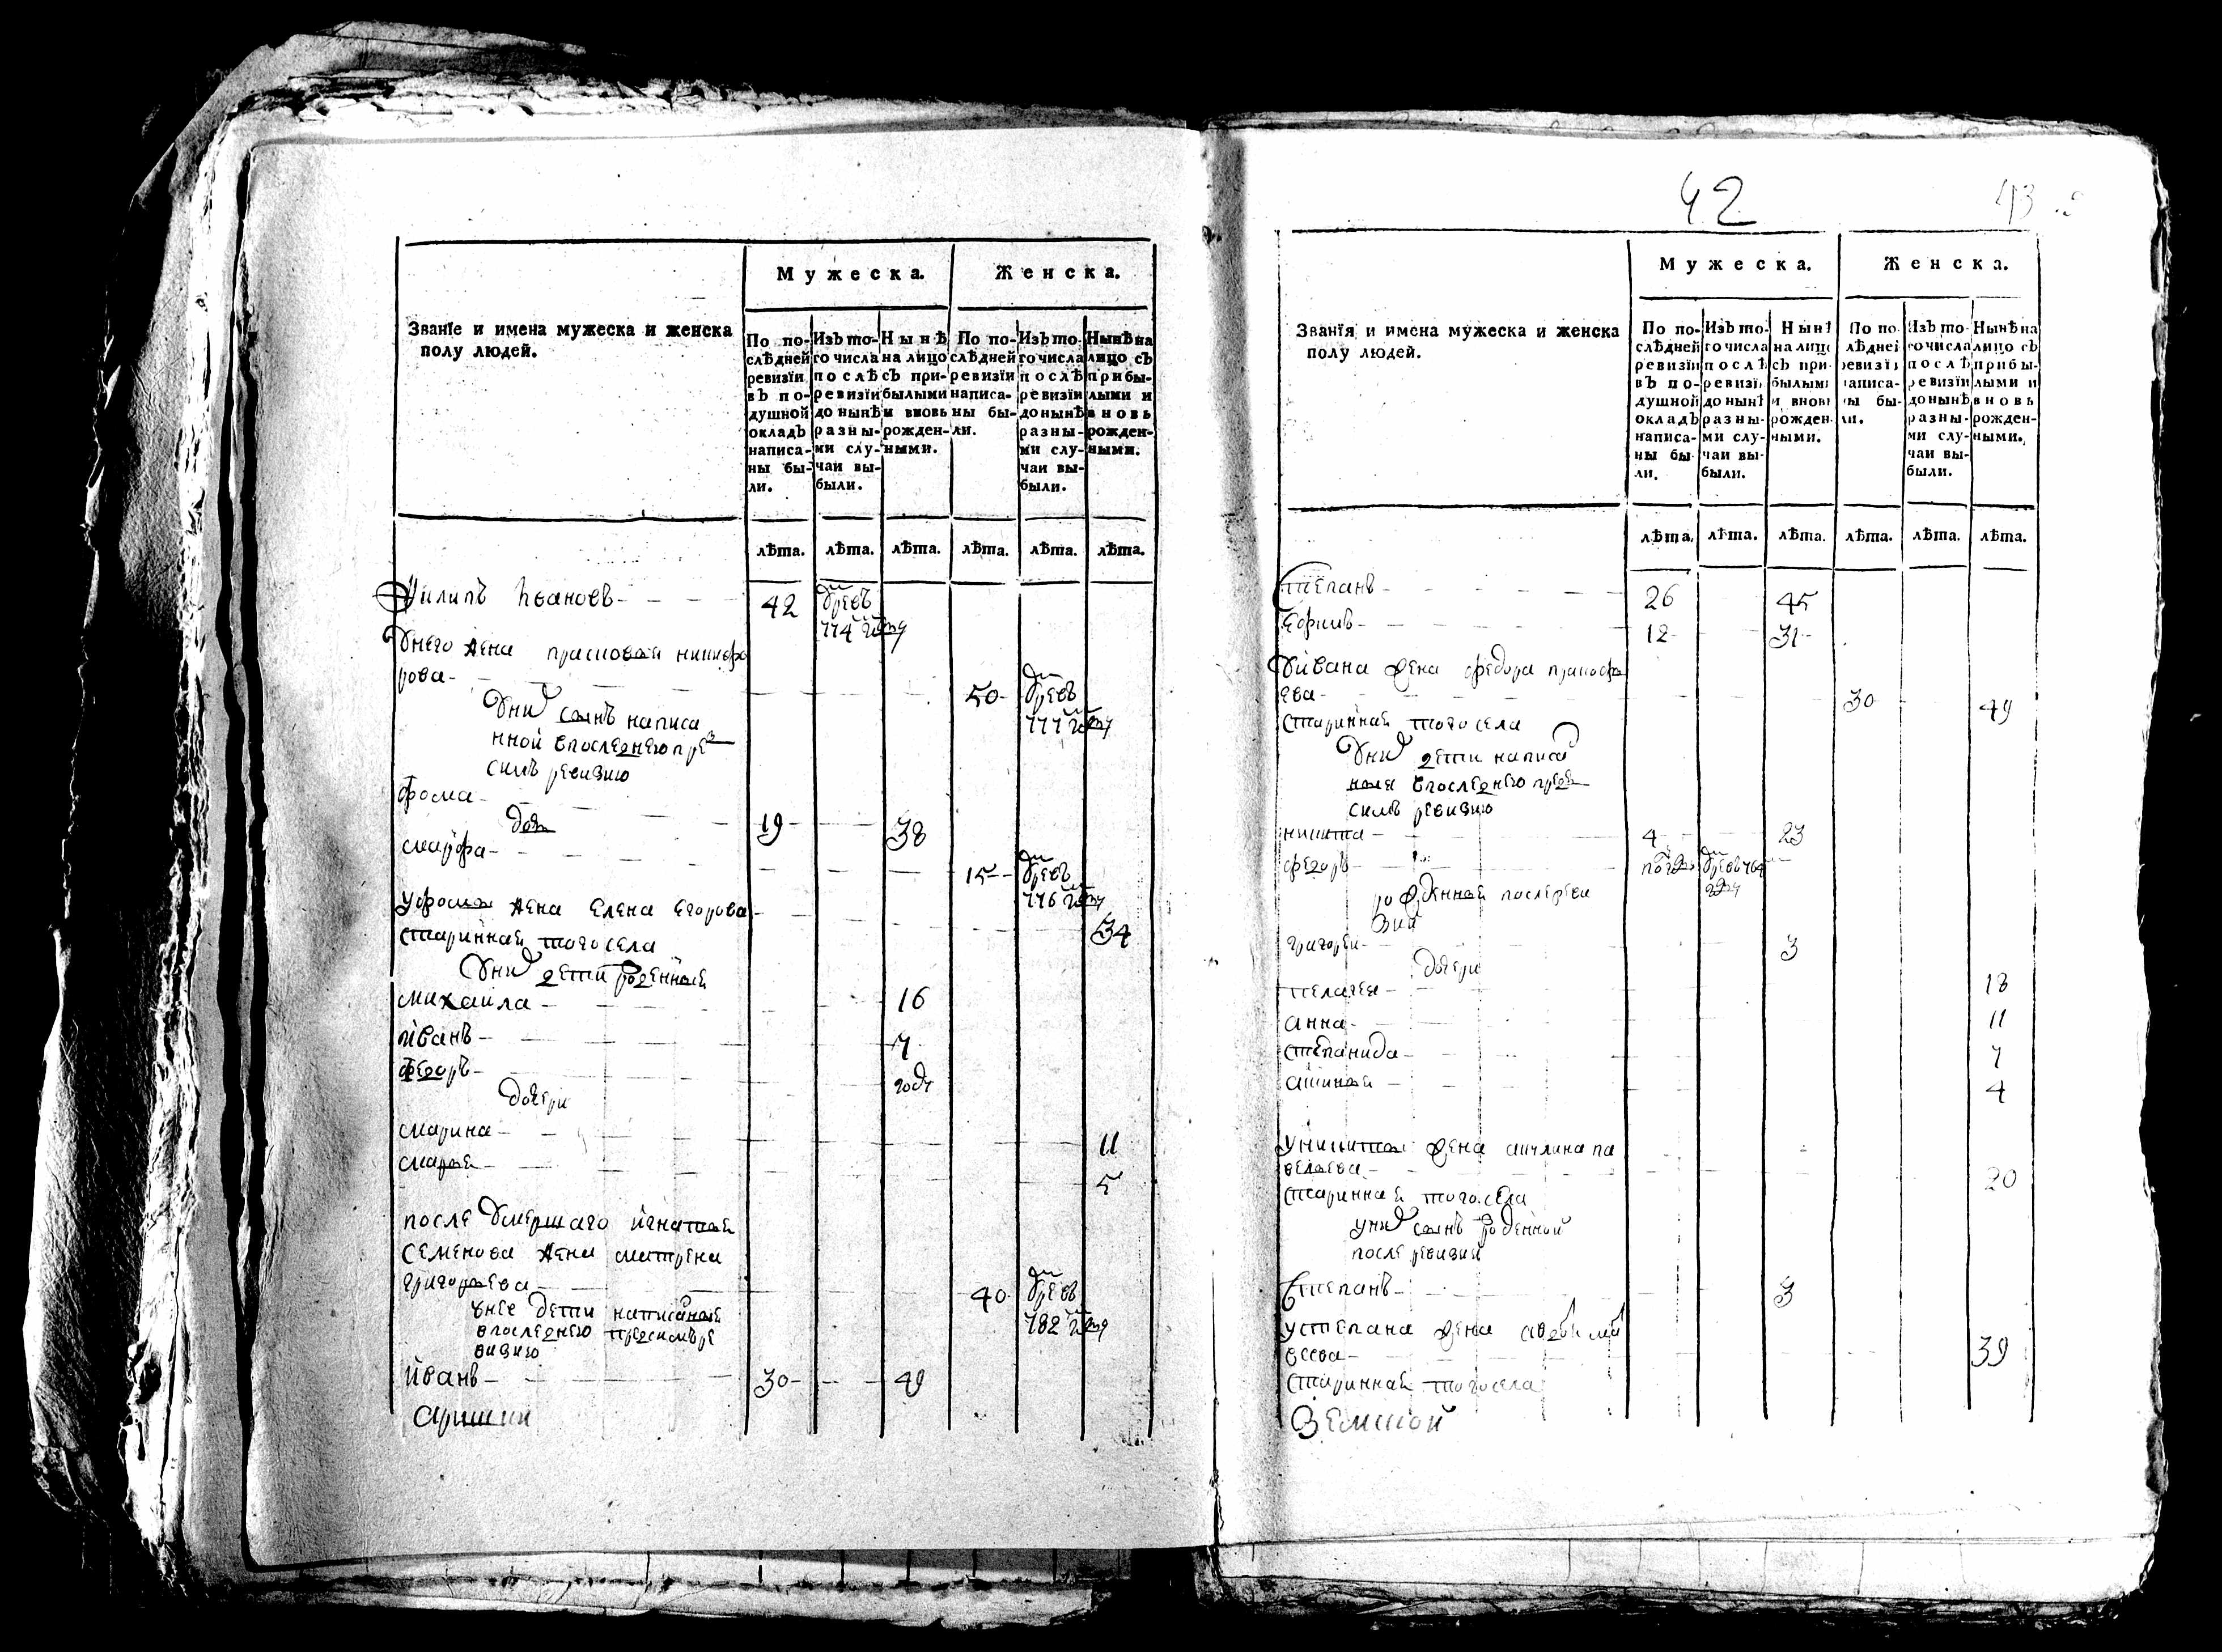 Мужеска.
Женска.
Званїе и имена мужеска и женска
полу людей.
По по-
слѣдней
ревизїи
въ по-
душной
окладъ
написа-
ны бы-
ли.
Изъ то-
го числа
послѣ
ревизїи
до нынѣ
разны-
ми слу-
чаи вы-
были.
Нынѣ
на лицо
съ при-
былыми
и вновь
рожден-
ными.
По по-
слѣдней
ревизїи
написа-
ны бы-
ли.
Изъ то-
го числа
послѣ
ревизїи
до нынѣ
разны-
ми слу-
чаи вы-
были.
Нынѣ на
лицо съ
прибы-
лыми и
вновь
рожден-
ными.
лѣта. лѣта. лѣта. лѣта. лѣта. лѣта.
Филипъ Ивановъ 42 умре въ
774 году
У него жена прасковья никифо
рова 50 умре въ
777 году
у них сынъ написа
нной впоследнею пре
симъ ревизию
Фома 19 38
дочь
марфа 15 умре въ
776 году
у фомы жена елена егорова 34
старинная того села
у них дети рожденныя
михаила 16
иванъ 7
федоръ году
дочери
марина 11
марья 5
после умершаго игнатья
семенова жена матрена
григорьева 40 умре въ
782 году
у нее дети написаныя
впоследнею пред симъ ре
визию
иванъ 30 49
42
43
Мужеска.
Женска.
Званїя и имена мужеска и женска
полу людей.
По по-
слѣдней
ревизїи
въ по-
душной
окладъ
написа-
ны бы-
ли.
Изъ то-
го числа
послѣ
ревизїи
до нынѣ
разны-
ми слу-
чаи вы-
были.
Нынѣ
на лицо
съ при-
былыми
и вновь
рожден-
ными.
По по-
слѣдней
ревизїи
написа-
ны бы-
ли.
Изъ то-
го числа
послѣ
ревизїи
до нынѣ
разны-
ми слу-
чаи вы-
были.
Нынѣ на
лицо съ
прибы-
лыми и
вновь
рожден-
ными.
лѣта. лѣта. лѣта. лѣта. лѣта. лѣта.
степанъ 26 45
Ефимъ 12 31
У ивана жена федора прокофь
ева 30 49
старинная того села
у них дети написа
ныя впоследнею пред
симъ ревизию
никита 4 23
федоръ умре въ 764
году
рожденныя после реви
зии
григорей 3
дочери
пелагея 18
анна 11
степанида 7
аксинья 4
у никиты жена акулина па
велева 20
старинная того села
у них сынъ рожденной
после ревизии
Степанъ 3
у степана жена авдотья
39
старинная того села
Земской